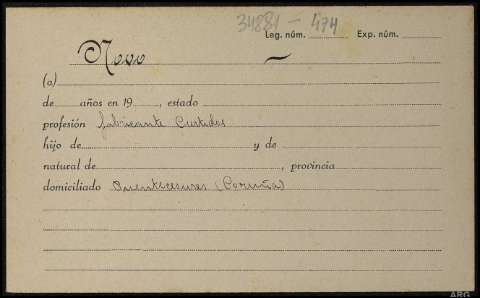 34881 - 474
Leg. núm. Exp. núm.
Novo
(a)
de años en 19 , estado
profesión fabricante Curtidos
hijo de y de
natural de , provincia
domiciliado Puentecesures (Coruña)
ARG